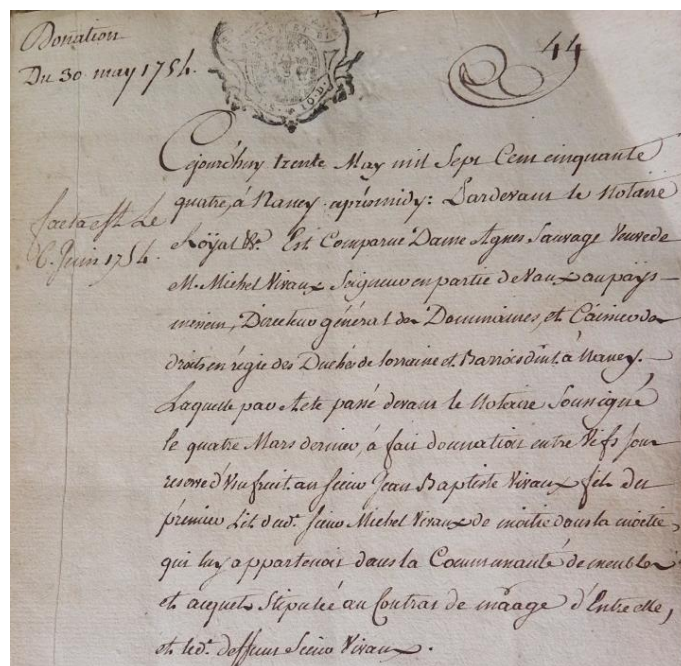 Donation
Du 30 may 1754.
44
facta est Le
6. Juin 1754.
Cejourd'huy trente May mil Sept Cent cinquante
quatre, à Nancy aprèsmidy: Pardevant le Notaire
Royal &c. Est Comparue Dame Agnes Sauvage Veuve de
M. Michel Vivaux Seigneur en partie de Vaux au pays-
messin, Directeur général des Dommaines, et Caissier des
droits en régie des Duchés de lorraine et Barrois dmt. à Nancy.
Laquelle par Acte passé devant le Notaire Soussigné
le quatre Mars dernier, à fait donnation entre Vifs sous
reserve d'Usufruit au sieur Jean Baptiste Vivaux fils du
premier Lit dud. sieur Michel Vivaux de moitié dans la moitié,
qui luy appartenoit dans la Communauté de meubles
et acquets Stipulée au Contras de mãage d'Entre elle,
et led. deffunt Sieur Vivaux.